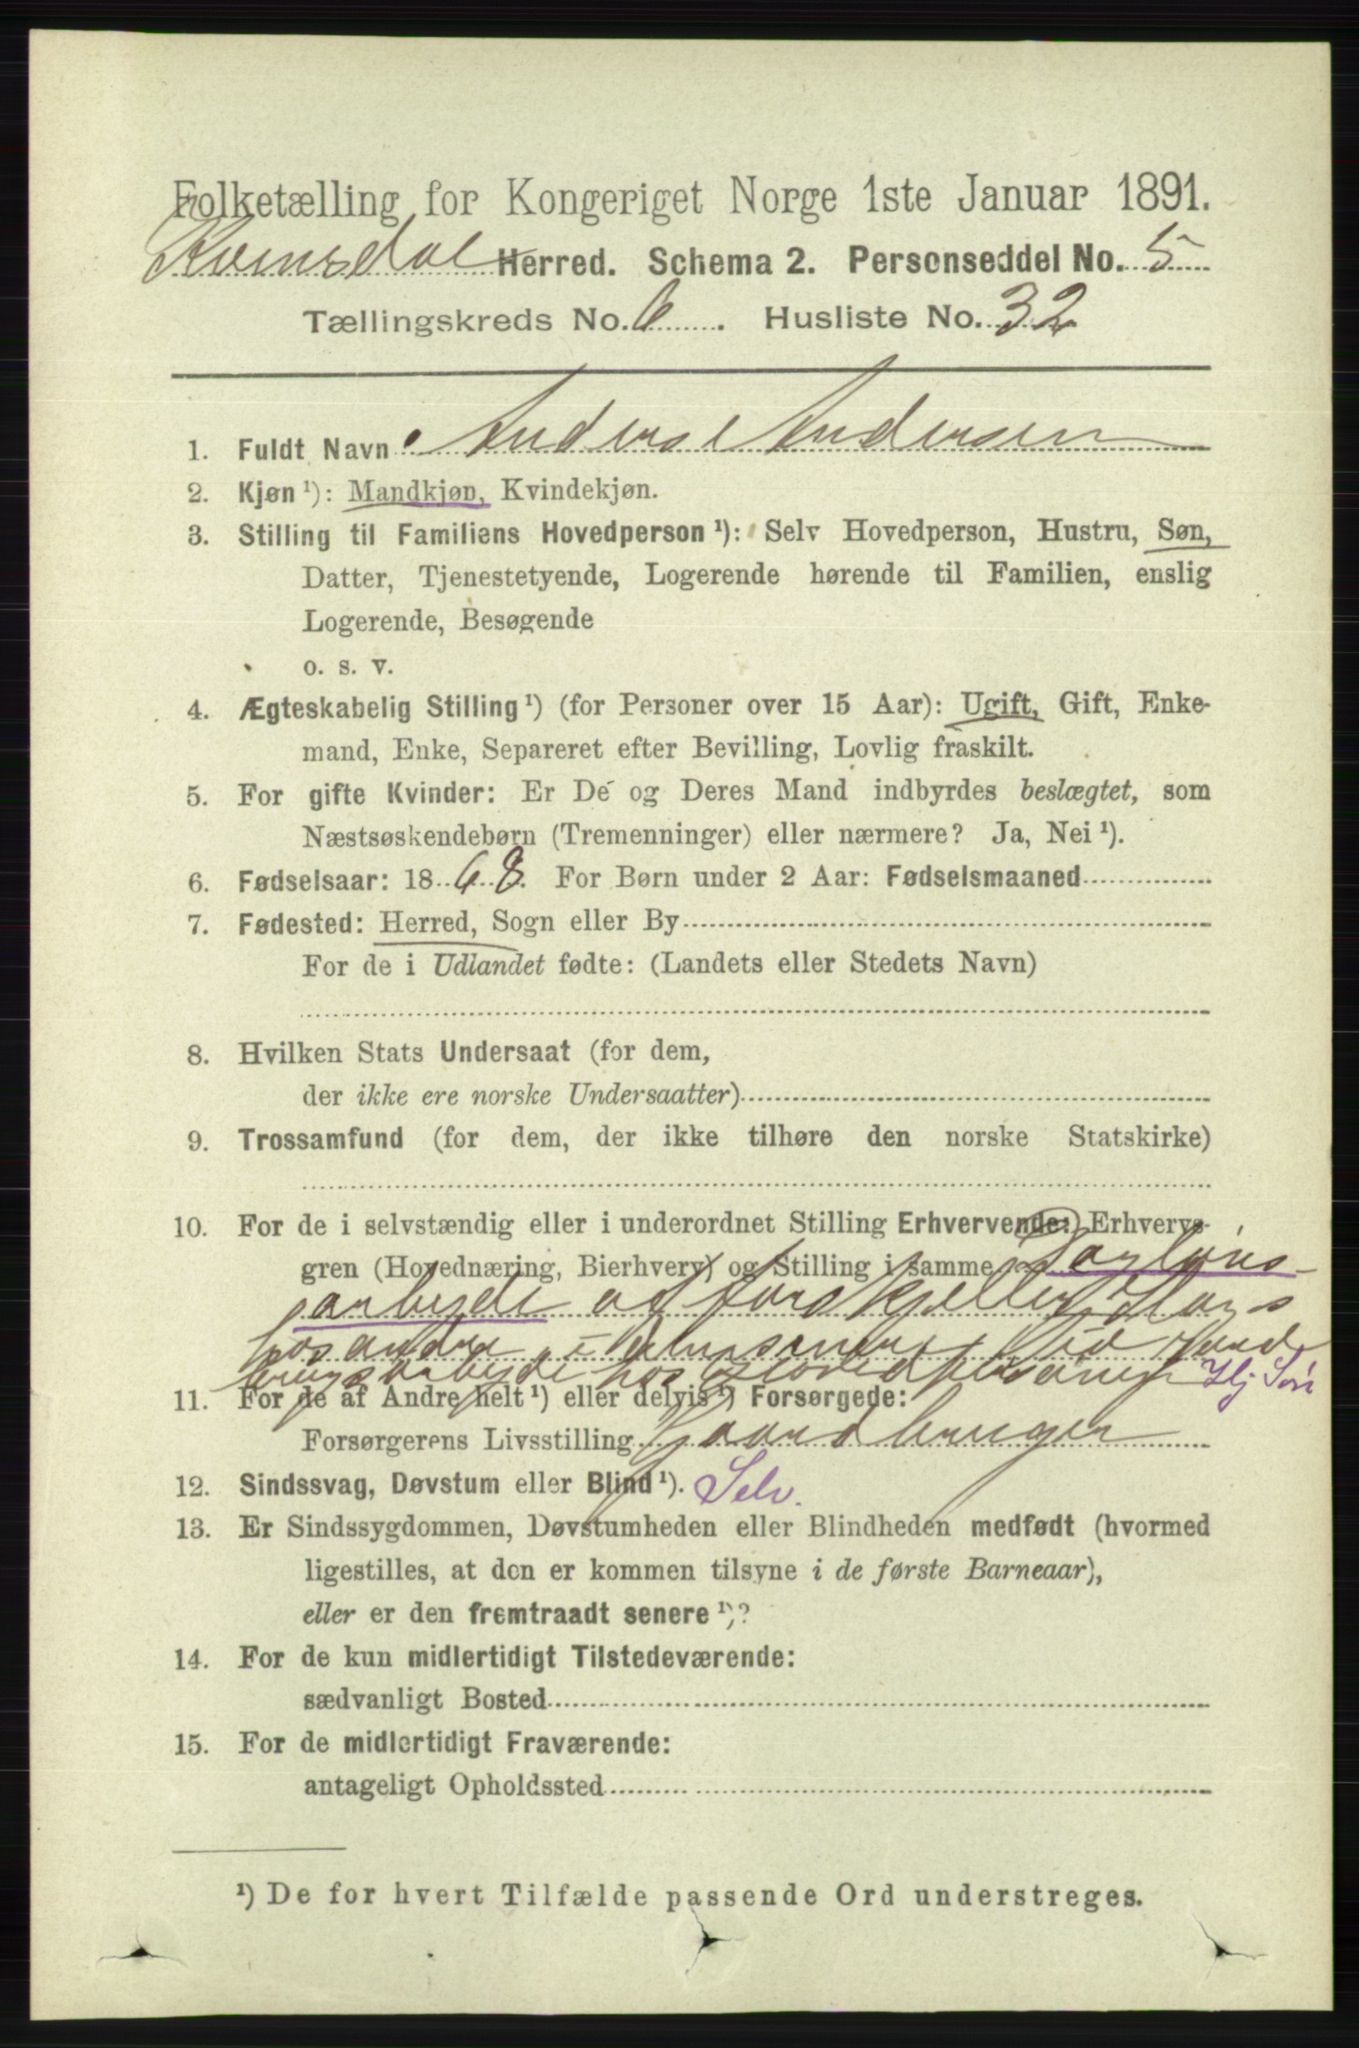 Folketælling for Kongeriget Norge 1ste Januar 1891.
Herred. Schema 2. Personseddel No. 5
Tællingskreds No. 6. Husliste No. 32
1. Fuldt Navn Anders Andersen
2. Kjøn ¹): Mandkjøn, Kvindekjøn.
3. Stilling til Familiens Hovedperson ¹): Selv Hovedperson, Hustru, Søn,
Datter, Tjenestetyende, Logerende hørende til Familien, enslig
Logerende, Besøgende
o. s. v.
4. Ægteskabelig Stilling ¹) (for Personer over 15 Aar): Ugift, Gift, Enke-
mand, Enke, Separeret efter Bevilling, Lovlig fraskilt.
5. For gifte Kvinder: Er De og Deres Mand indbyrdes beslægtet, som
Næstsøskendebørn (Tremenninger) eller nærmere? Ja, Nei ¹).
6. Fødselsaar: 1868. For Børn under 2 Aar: Fødselsmaaned
7. Fødested: Herred, Sogn eller By
For de i Udlandet fødte: (Landets eller Stedets Navn)
8. Hvilken Stats Undersaat (for dem,
der ikke ere norske Undersaatter)
9. Trossamfund (for dem, der ikke tilhøre den norske Statskirke)
10. For de i selvstændig eller i underordnet Stilling Erhvervende: Erhvervs-
gren (Hovednæring, Bierhverv) og Stilling i samme Dagløns-
arbeide af forskjellig Slags
hos andre
Hj Søn
11. For de af Andre helt ¹) eller delvis ¹) Forsørgede:
Forsørgerens Livsstilling Gaardbruger
12. Sindssvag, Døvstum eller Blind ¹). Selv.
13. Er Sindssygdommen, Døvstumheden eller Blindheden medfødt (hvormed
ligestilles, at den er kommen tilsyne i de første Barneaar),
eller er den fremtraadt senere ¹)?
14. For de kun midlertidigt Tilstedeværende:
sædvanligt Bosted
15. For de midlertidigt Fraværende:
antageligt Opholdssted
¹) De for hvert Tilfælde passende Ord understreges.